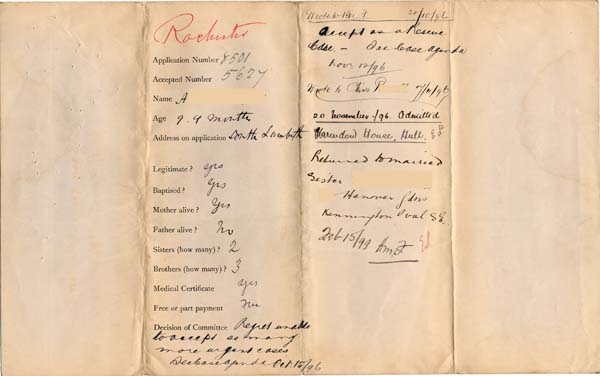 Rochester
Application Number 8501
Accepted Number 5627
Name A
Age 9.9 months
Address on application South Lambeth
Legitimate? yes
Baptised? Yes
Mother alive? Yes
Father alive? No
Sisters (how many)? 2
Brothers (how many)? 3
Medical Certificate yes
Free or part payment
Decision of Committee Regret unable
to accept so many
more urgent cases
See Case agenda Oct 15/96
Wrote to Miss P 20/10/96
Accept as a Reserve
Case. – See Case agenda
Nov 12/96
Wrote to Miss P
20 November/96 Admitted
Harrowdow House, Hull.
Returned to married
Sister
Hanover Gdns
Kennington Oval S.E.
Feb 15/99